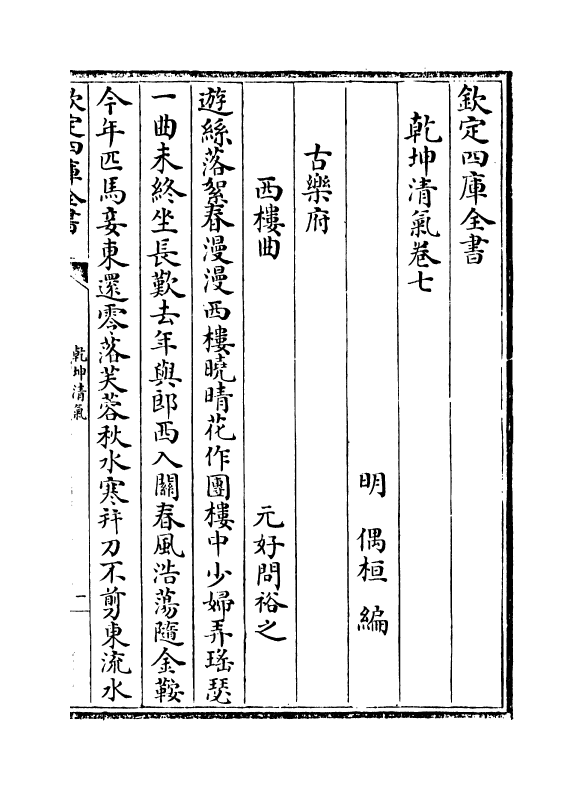 欽定四庫全書
乾坤清氣卷七
明 偶桓 編
古樂府
西樓曲 元好問裕之
遊絲落絮春漫漫西樓曉晴花作團樓中少婦弄瑤瑟
一曲未終坐長歎去年與郎西入關春風浩蕩隨金鞍
今年匹馬妾東還零落芙蓉秋水寒并刀不剪東流水
欽定四庫全書
乾坤清氣
一